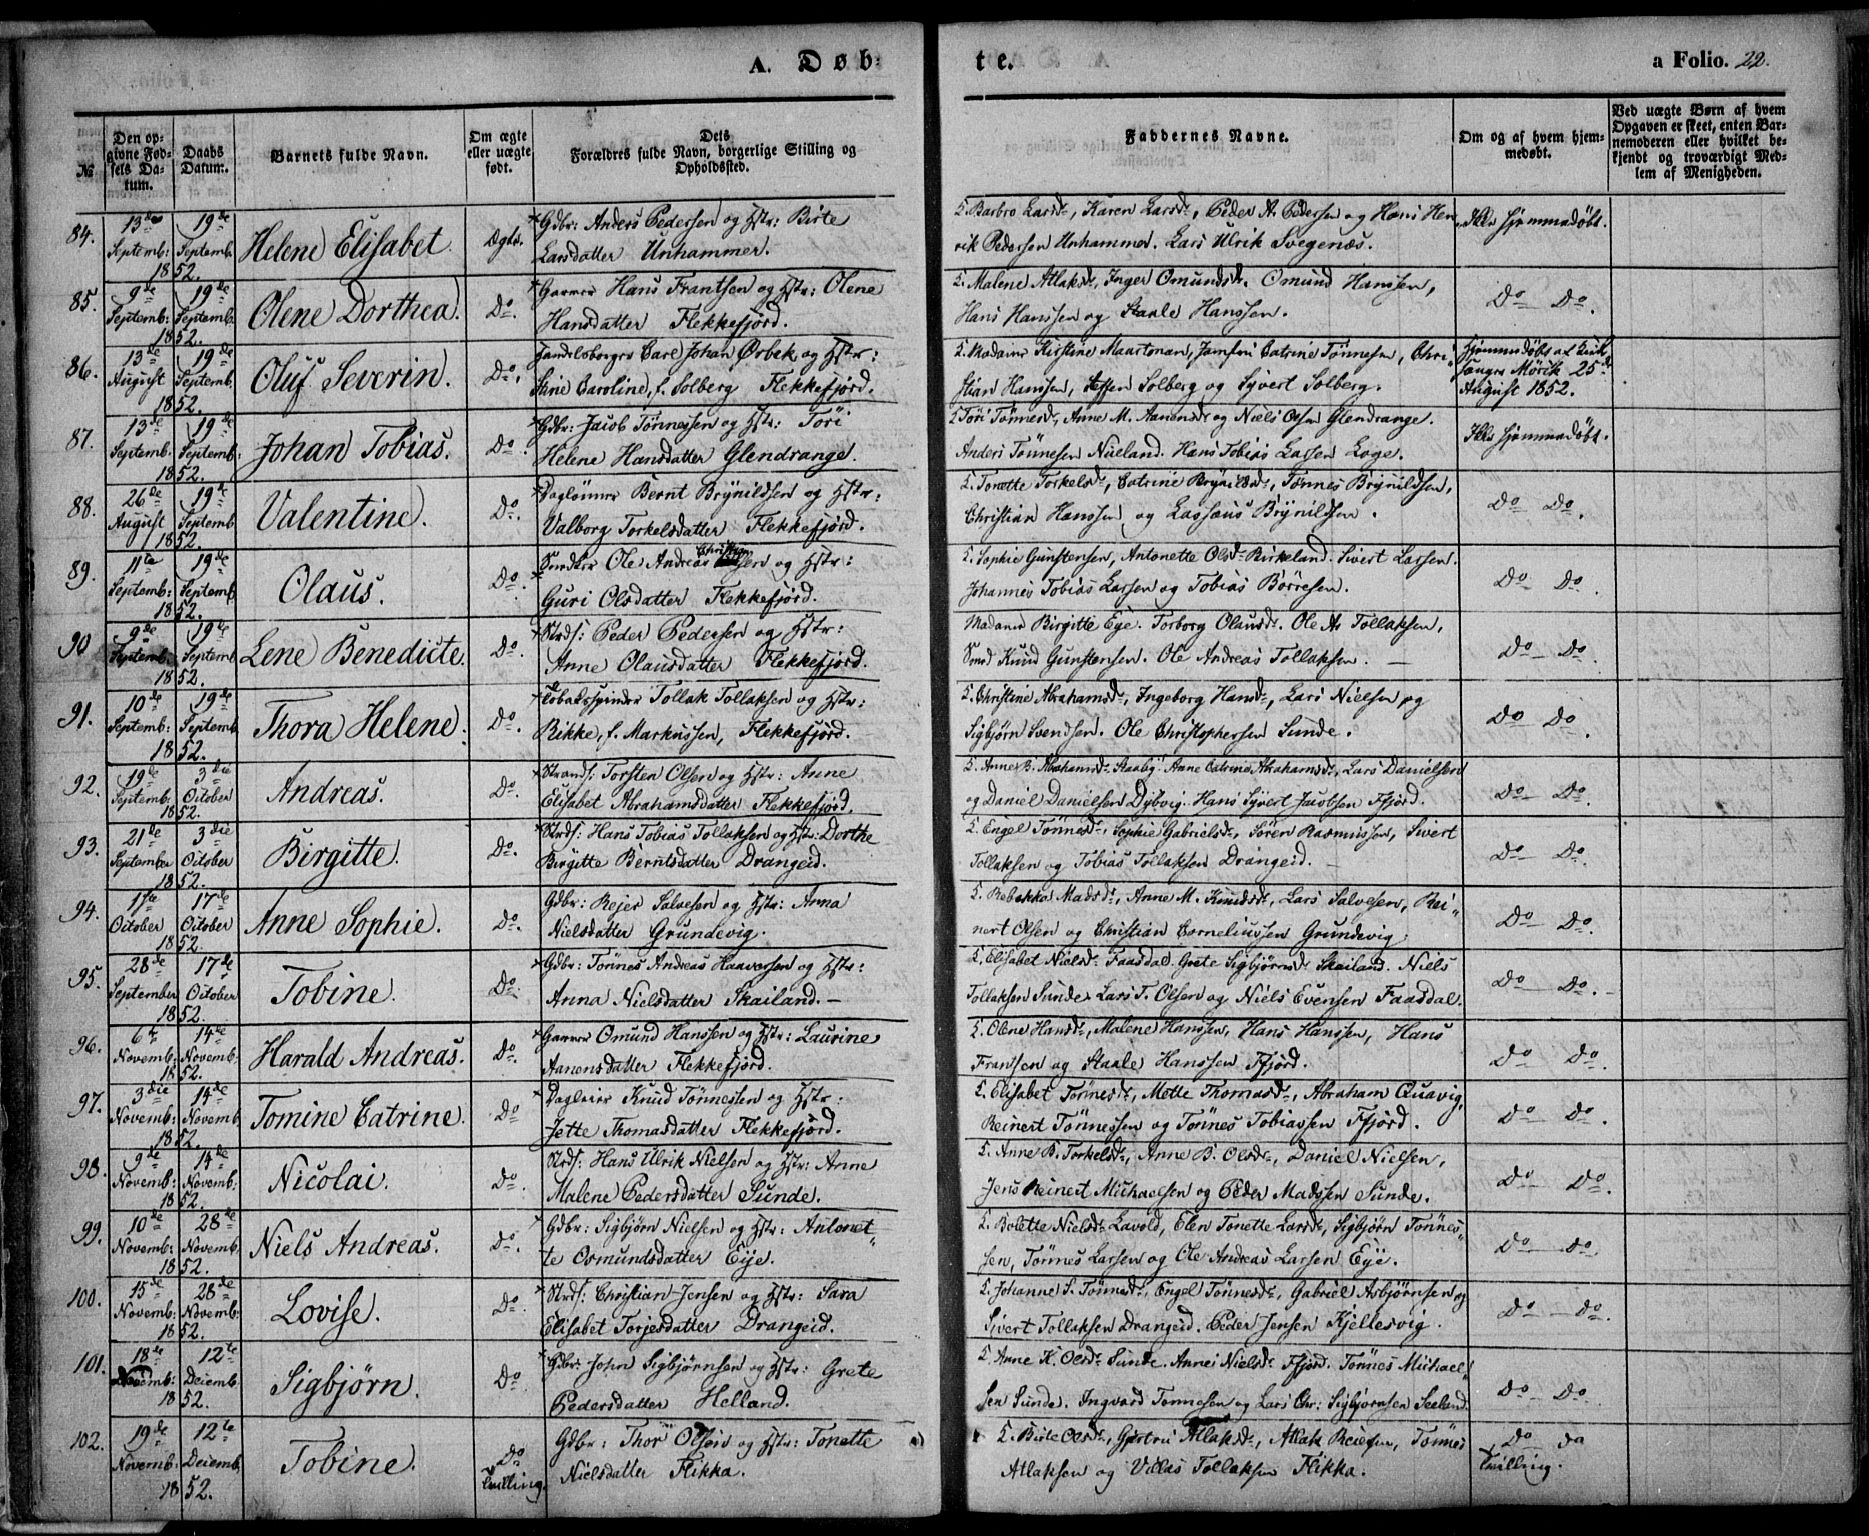 A. Døb-
te.
a Folio. 22.
№
Den op-
givne Fød-
sels Da-
tum.
Daabs
Datum.
Barnets fulde Navn.
Om ægte
eller uægte
født.
Dets
Forældres fulde Navn, borgerlige Stilling og
Opholdssted.
Faddernes Navne.
Om og af hvem hjem-
medøbt.
Ved uægte Børn af hvem
Opgaven er skeet, enten Bar-
nemoderen eller hvilket be-
kjendt og troværdigt Med-
lem af Menigheden.
84.
13de
Septemb:
1852.
19de
Septemb.
Helene Elisabet.
Ægte.
Gdbr: Anders Pedersen og Hstr: Birte
Larsdatter Unhammer.
F. Barbro Larsdr, Karen Larsdr, Peder A. Pedersen og Hans Hen-
rik Pedersen Unhammer. Lars Ulrik Svegenæs.
Ikke hjemmedøbt.
85.
9de
Septemb:
1852.
19de
Septemb.
Olene Dorthea.
Do.
Garver Hans Frantsen og Hstr: Olene
Hansdatter Flekkefjord.
F. Malene Atlaksdr, Inger Omundsdr. Omund Hanssen,
Hans Hanssen og Staale Hanssen.
Do Do.
86.
13de
August
1852.
19de
Septemb.
Oluf Severin.
Do.
Handelsborger Carl Johan Ørbek og Hstr:
Sine Caroline, f. Solberg Flekkefjord.
F. Madame Kirstine Maartman, Jomfru Catrine Tönnesen, Chri-
stian Hanssen, Steffen Solberg og Syvert Solberg.
Hjemmedøbt af Kirk
sanger Mörik 25de
August 1852.
87.
13de
Septemb.
1852.
19de
Septemb:
Johan Tobias.
Do.
Gdbr: Jacob Tönnessen og Hstr: Töri
Helene Hansdatter Glendrange.
F. Töri Tönnesdr, Anne M. Aanensdr og Niels Olsen Glendrange.
Anders Tönnesen Nueland. Hans Tobias Larsen Loge.
Ikke hjemmedøbt.
88.
26de
August
1852.
19de
Septemb.
Valentine.
Do.
Daglönner Bernt Brynildsen og Hstr:
Valborg Torkelsdatter Flekkefjord.
F. Tonette Torkelsdr, Catrine Brynildsdr, Tönnes Brynildsen,
Christian Hanssen og Lassæus Brynildsen.
Do Do.
89.
11te
Septemb:
1852.
19de
Septemb.
Olaus.
Do.
Snedker Ole Andreas Christian og Hstr:
Guri Olsdatter Flekkefjord.
F. Sophie Gunstensen, Antonette Olsdr Birkeland. Sivert Larsen.
Johannes Tobias Larsen og Tobias Börresen.
Do Do.
90
9de
Septemb.
1852.
19de
Septemb.
Lene Benedicte.
Do.
Strds: Peder Pedersen og Hstr:
Anne Olausdatter Flekkefjord.
Madame Birgitte Eye. Torborg Olausdr. Ole As Tollaksen,
Smed Knud Gunstensen. Ole Andreas Tollaksen.
Do Do.
91.
10de
Septemb:
1852.
19de
Septemb.
Thora Helene.
Do.
Tobaksspinder Tollak Tollaksen og Hstr:
Rikke, f. Markussen, Flekkefjord.
F. Christine Abrahamsdr, Ingeborg Hansdr, Lars Nielsen og
Sigbjörn Svendsen. Ole Christophersen Sunde.
Do Do.
92.
19de
Septemb:
1852.
3die
October
Andreas.
Do.
Strands: Torsten Olsen og Hstr: Anne
Elisabet Abrahamsdatter Flekkefjord.
F. Anne B. Abrahamsdr. Anne Catrine Abrahamsdr, Lars Danielsen
og Daniel Danielsen Dybvig. Hans Syvert Jacobsen Ffjord.
Do Do.
93.
21de
September
1852.
3die
October
Birgitte.
Do.
Strds: Hans Tobias Tollaksen og Hstr: Dorthe
Birgitte Berntsdatter Drangeid.
F. Engel Tönnesdr, Sophie Gabrielsdr, Sören Rasmussen, Sivert
Tollaksen og Tobias Tollaksen Drangeid.
Do Do.
94.
1ste
October
1852.
17de
October
Anne Sophie.
Do.
Gdbr: Rejer Salvesen og Hstr: Anna
Nielsdatter Grundevig.
F. Rebekka Madsdr, Anne M. Knudsdr, Lars Salvesen, Rei-
nert Olsen og Christian Corneliussen Grundevig.
Do Do.
95.
28de
September
1852.
17de
October
Tobine.
Do.
Gdbr: Tönnes Andreas Haaversen og Hstr:
Anna Nielsdatter Skailand.
F. Elisabet Nielsdr Faasdal. Grete Sigbjörnsdr Skailand. Niels
Tollaksen Sunde. Lars T. Olsen og Niels Evensen Faasdal.
Do Do.
96.
6te
Novemb:
1852.
14de
Novemb.
Harald Andreas.
Do.
Garver Omund Hanssen og Hstr: Laurine
Aanensdatter Flekkefjord.
F. Olene Hansdr, Malene Hanssen, Hans Hanssen, Hans
Frantsen og Staale Hanssen Ffjord.
Do Do.
97.
3die
Novemb:
1852.
14de
Novemb.
Tomine Catrine.
Do
Dagleier Knud Tönnessen og Hstr:
Jette Thomasdatter Flekkefjord.
F. Elisabet Tönnesdr, Mette Thomasdr, Abraham Quavig,
Reinert Tönnessen og Tönnes Tobiassen Ffjord.
Do Do.
98.
9de
Novemb:
1852.
14de
Novemb:
Nicolai.
Do.
Strds: Hans Ulrik Nielsen og Hstr: Anne
Malene Pedersdatter Sunde.
F. Anne B. Torkelsdr, Anne B. Olsdr, Daniel Nielsen,
Jens Reinert Michaelsen og Peder Madssen Sunde.
Do Do.
99.
10de
Novemb:
1852.
28de
Novemb.
Niels Andreas.
Do.
Gdbr: Sigbjörn Nielsen og Hstr: Antonet-
te Osmundsdatter Eije.
F. Bolette Nielsdr Lavold, Elen Tonette Larsdr, Sigbjörn Tönnes-
sen, Tönnes Larsen og Ole Andreas Larsen Eije.
Do Do.
100.
15de
Novemb:
1852.
28de
Novemb:
Lovise.
Do.
Strds: Christian Jensen og Hstr: Sara
Elisabet Torjesdatter Drangeid.
F. Johanne S. Tönnesdr, Engel Tönnesdr, Gabriel Asbjörnsen og
Sivert Tollaksen Drangeid. Peder Jensen Kjellesvig.
Do Do.
101.
18de
Novemb:
1852.
12te
Decemb.
Sigbjørn.
Do
Gdbr: John Sigbjörnsen og Hstr: Grete
Pedersdatter Helland.
F. Anne K. Olsdr Sunde. Anne Nielsdr Ffjord. Tönnes Michael-
sen Sunde. Ingvard Tönnesen og Lars Chr: Sigbjörnsen Seeland.
Do Do.
102.
19de
Novemb:
1852.
12te
Decemb.
Tobine.
Do
Tvilling.
Gdbr: Thor Olsen og Hstr: Tonette
Nielsdatter Flikka.
F. Birte Olsdr, Gjertru Atlaksdr, Atlak Reiersen, Tönnes
Atlaksen og Villas Tollaksen Flikka.
Do Do
Tvilling.